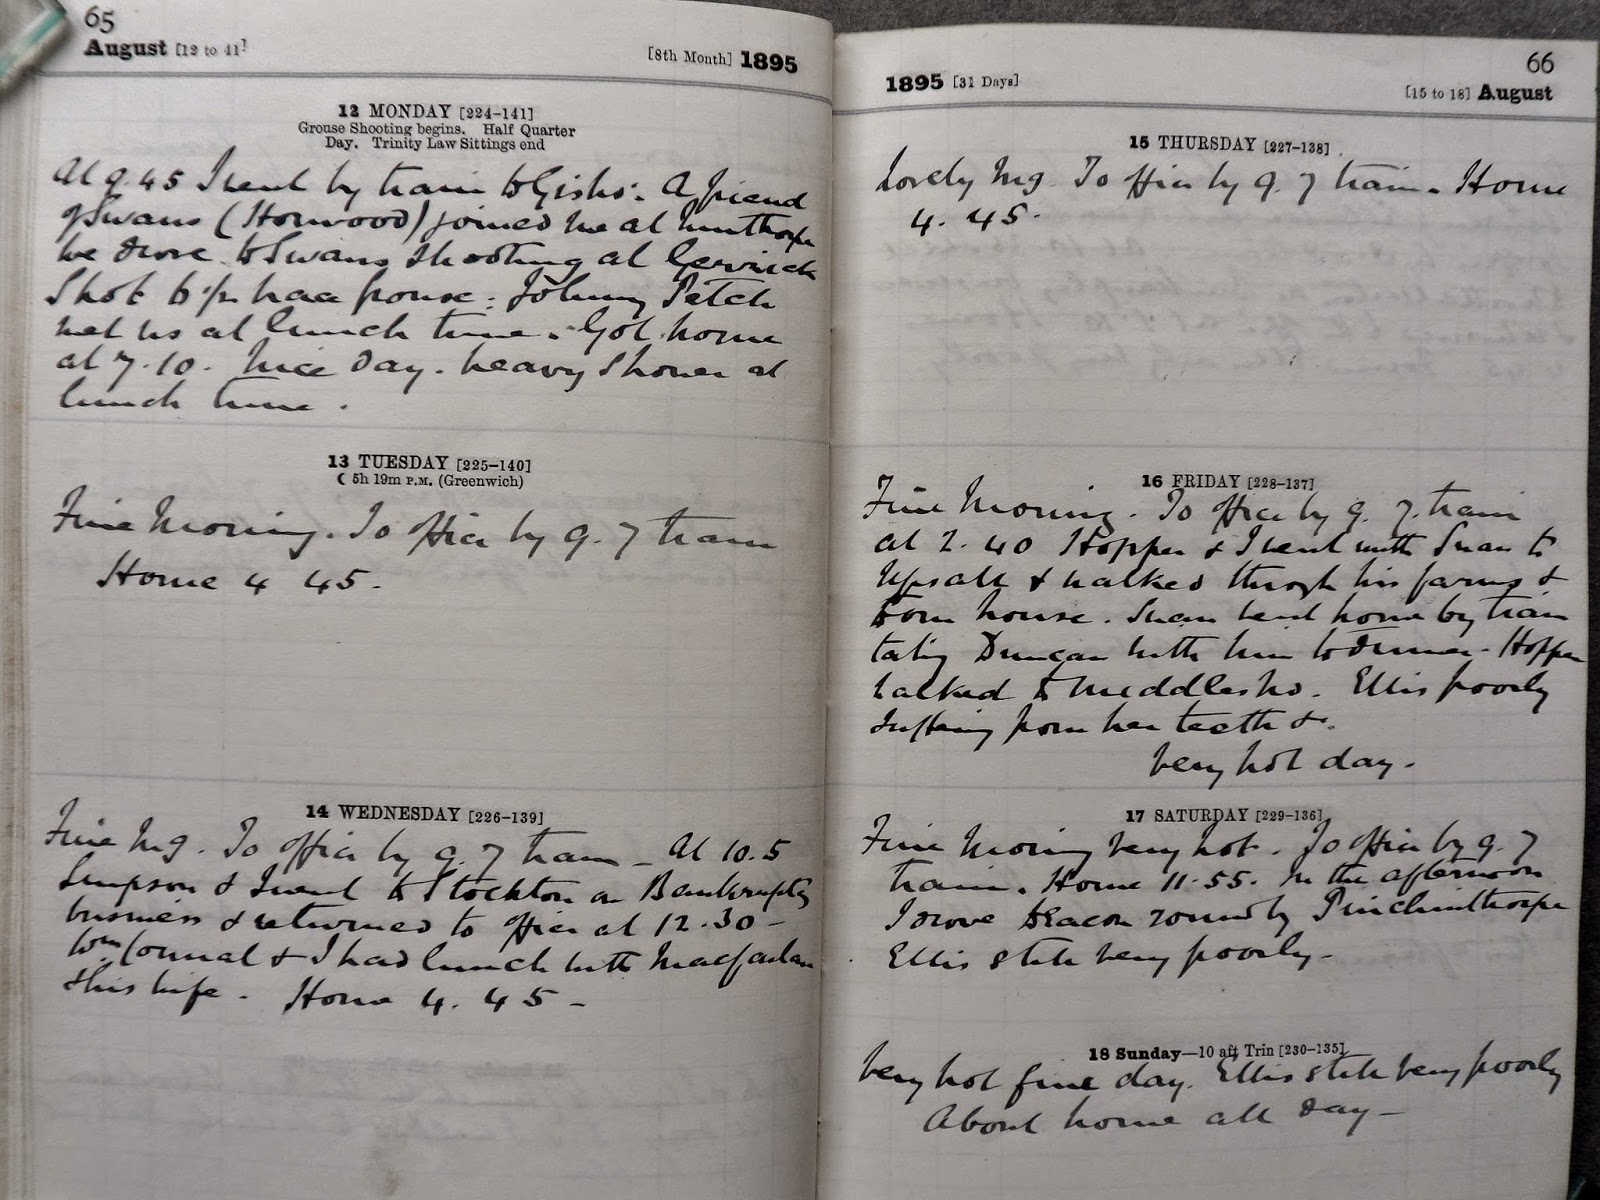 65
August [12 to 41]
[8th Month] 1895
12 MONDAY [224-141]
Grouse Shooting begins. Half Quarter
Day. Trinity Law Sittings end
At 9.45 I went by train to Gisbo'. A friend
of Swans (Horwood) joined me at Nunthorpe
we drove to Swans shooting at Gerrick
Shot 6 1/2 brace grouse. Johnny Petch
met us at lunch time. Got home
at 7.10. Nice day. heavy shower at
lunch time.
13 TUESDAY [225-140]
☾ 5h 19m P.M. (Greenwich)
Fine Morning. To office by 9.7 train
Home 4 45.
14 WEDNESDAY [226-139]
Fine Mg. To office by 9.7 train - At 10.5
Simpson & I went to Stockton on Bankruptcy
business & returned to office at 12.30 -
Wm & I had lunch with Macfarlan
& his wife. Home 4. 45 -
1895 [31 Days]
66
[15 to 18] August
15 THURSDAY [227-138]
Lovely Mg. To office by 9.7 train. Home
4. 45.
16 FRIDAY [228-137]
Fine Morning. To office by 9.7. train
at 2.40 Hopper & I went with Swan to
Upsall & walked through his farms &
house. Swan went home by train
taking Duncan with him to dinner - Hopper
walked to Middlesbro. Ellis poorly
suffering from her teeth &.
Very hot day.
17 SATURDAY [229-136]
Fine Morning very hot. To office by 9.7
train. Home 11.55. In the afternoon
I drove round by Pinchinthorpe
Ellis still very poorly -
18 Sunday—10 aft Trin [230-135]
Very hot fine day. Ellis still very poorly
About home all day -